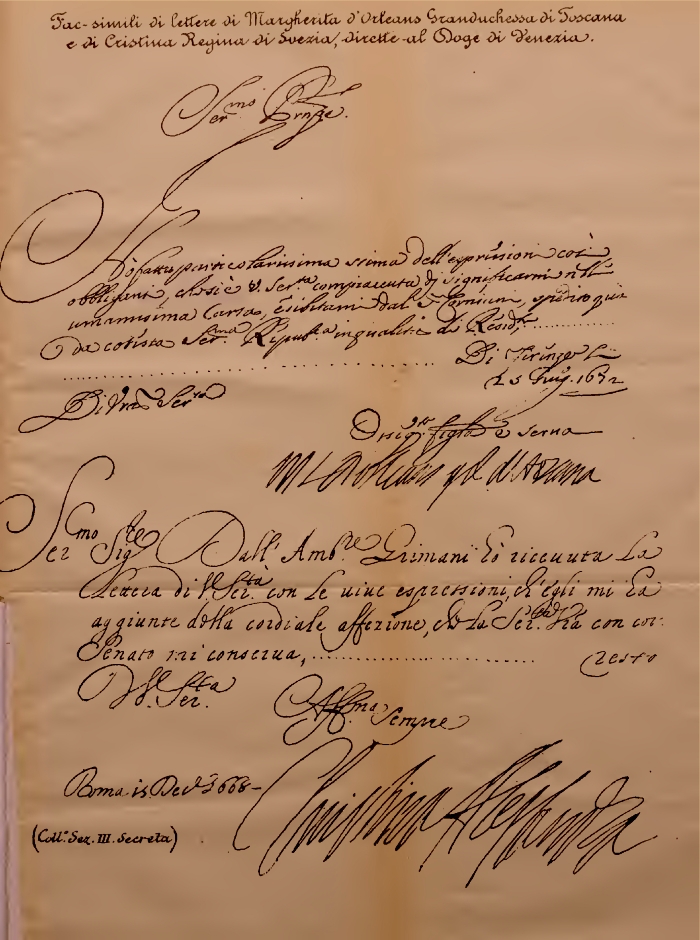 Fac-simili di lettere di Margherita d'Orleans Granduchessa di Toscana
e di Cristina Regina di Svezia, dirette al Doge di Venezia.
Ser.mo Prnpe.
Hò fatto particolarissima stima dell'espressioni così
obbliganti, che si è V. Ser.ta compiaciuta di significarmi nell'
umanissima Carta, esibitami dal
da cotesta Ser.ma Repub.ca in qualità di Resid.te..............
Di Firenze li
25 1672
Di Vra Ser.tà
figlia e serva
Ser.mo Sig.re Dall' Amb.re Grimani hò ricevuta la
lettera di V. Ser.tà con le vive espressioni, ch'egli mi ha
aggiunte della cordiale affezione, che la Ser.tà Vra con cot.
Senato mi conserva,.................................. e resto
Di V. Ser.tà
Aff.ma sempre
Roma 15 Dec. 1668
Christina Alessandra
(Coll.o Sez. III. Secreta)